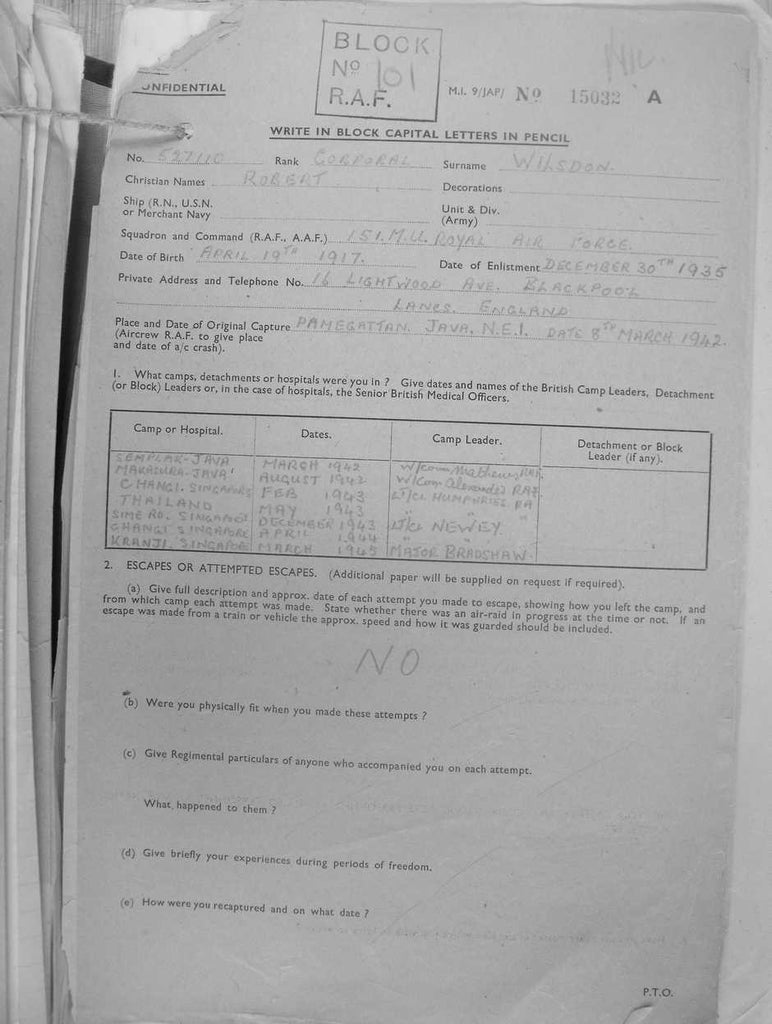 BLOCK
Nº 101
R.A.F.
NIL
ONFIDENTIAL
M.I. 9/JAP/ Nº 15032 A
WRITE IN BLOCK CAPITAL LETTERS IN PENCIL
No. 527110 Rank CORPORAL Surname WILSDON.
Christian Names ROBERT. Decorations
Ship (R.N., U.S.N. or Merchant Navy Unit & Div. (Army)
Squadron and Command (R.A.F., A.A.F.) 151. M.U. ROYAL AIR FORCE.
Date of Birth APRIL 19TH 1917. Date of Enlistment DECEMBER 30TH 1935
Private Address and Telephone No. 16 LIGHTWOOD AVE. BLACKPOOL
LANCS. ENGLAND
Place and Date of Original Capture PAMEGATTAN. JAVA. N.E.I. DATE 8TH MARCH 1942.
(Aircrew R.A.F. to give place
and date of a/c crash).
1. What camps, detachments or hospitals were you in ? Give dates and names of the British Camp Leaders, Detachment
(or Block) Leaders or, in the case of hospitals, the Senior British Medical Officers.
Camp or Hospital. Dates. Camp Leader. Detachment or Block Leader (if any).
SEMPLAK-JAVA MARCH 1942 W/Com Mathews, RAF
MAKASURA-JAVA AUGUST 1942 W/Com Alexander RAF
CHANGI. SINGAPORE FEB 1943 LT/CL HUMPHRIES RA
THAILAND MAY 1943 " "
SIME RD. SINGAPORE DECEMBER 1943 LT/CL NEWEY.
CHANGI SINGAPORE APRIL 1944 " "
KRANJI. SINGAPORE MARCH 1945 MAJOR BRADSHAW
2. ESCAPES OR ATTEMPTED ESCAPES. (Additional paper will be supplied on request if required).
(a) Give full description and approx. date of each attempt you made to escape, showing how you left the camp, and
from which camp each attempt was made. State whether there was an air-raid in progress at the time or not. If an
escape was made from a train or vehicle the approx. speed and how it was guarded should be included.
NO
(b) Were you physically fit when you made these attempts ?
(c) Give Regimental particulars of anyone who accompanied you on each attempt.
What happened to them ?
(d) Give briefly your experiences during periods of freedom.
(e) How were you recaptured and on what date ?
P.T.O.